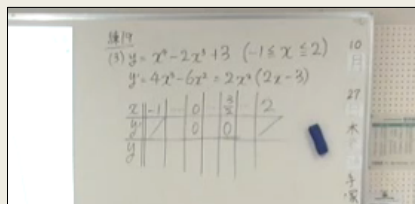 練19
(3) y = x⁴ - 2x³ + 3 (-1 ≦ x ≦ 2)
y' = 4x³ - 6x² = 2x²(2x - 3)
x -1 0 3/2 2
y' 0 0
y
10
日
27
木